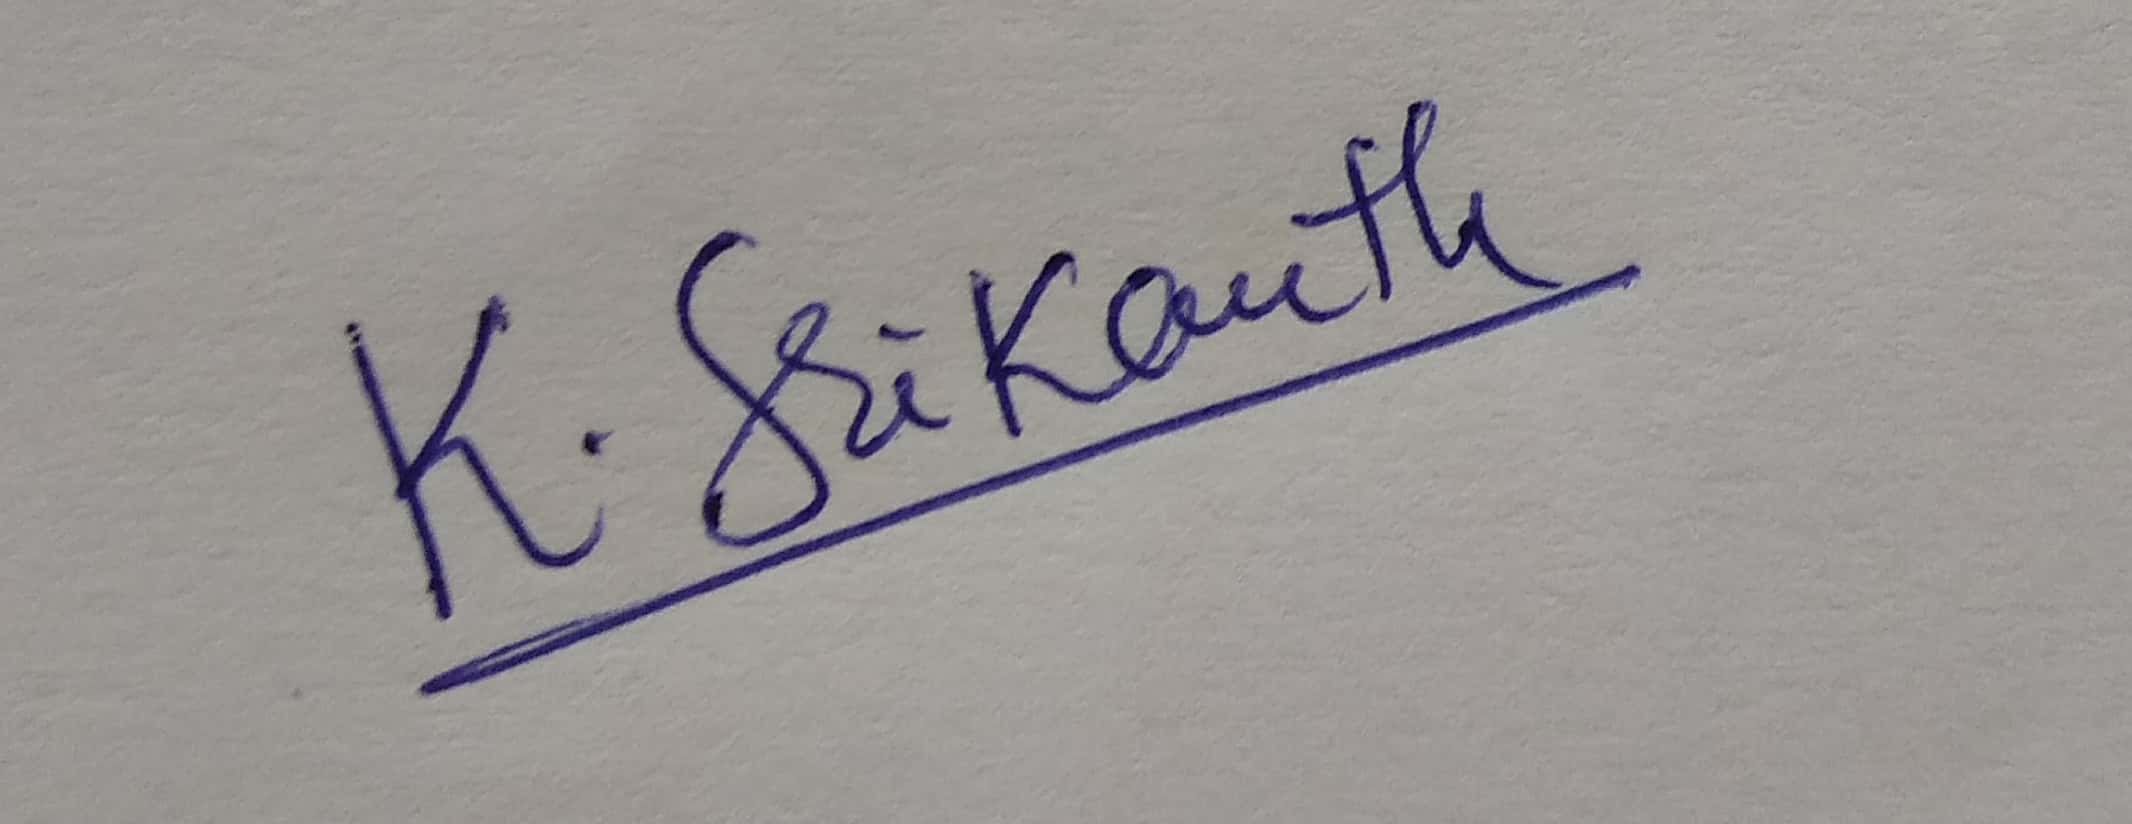 K. Srikanth